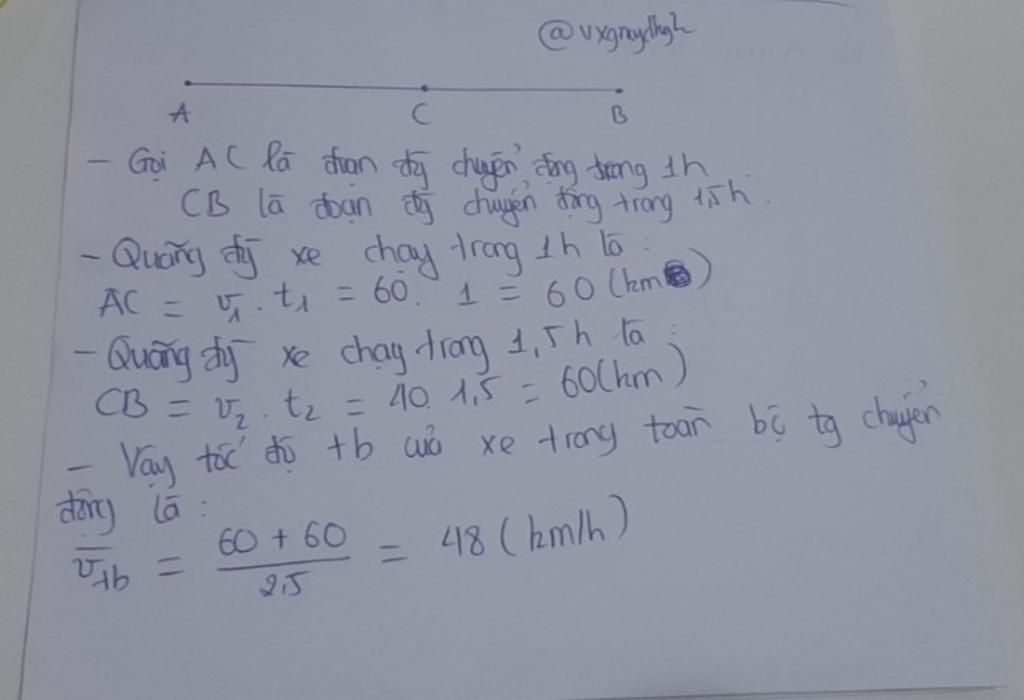 @vxgnydhgh
A C B
- Gọi AC là đoạn đg chuyển động trong 1h
CB là đoạn đg chuyển động trong 1,5h.
- Quãng đg xe chạy trong 1h là:
AC = v₁ . t₁ = 60. 1 = 60 (km)
- Quãng đg xe chạy trong 1,5h là:
CB = v₂ . t₂ = 40. 1,5 = 60(km)
- Vậy tốc độ tb của xe trong toàn bộ tg chuyển
động là:
v̅tb = (60 + 60)/2,5 = 48 (km/h)